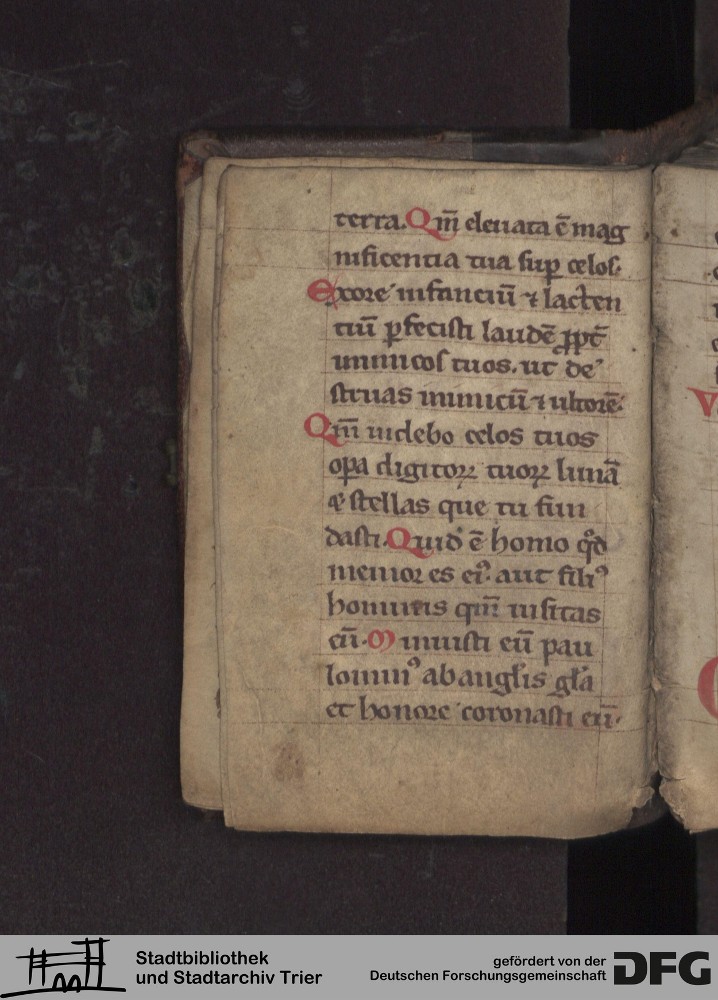 terra. Qm̄ eleuata ē mag
nificentia tua sup celos.
Ex ore infanciū ⁊ lacten
tiū pfecisti laudē ꝓpt̄
inimicos tuos. ut de
struas inimicū ⁊ ultorē.
Qm̄ uidebo celos tuos
opa digitoꝝ tuoꝝ lunā
& stellas que tu fun
dasti. Quid ē homo qd
memor es ei᾿. aut fili᾿
hominis qm̄ uisitas
eū. Minuisti eū pau
lomin᾿ ab angl̄is gl̄a
et honore coronasti eū.
V
Stadtbibliothek
und Stadtarchiv Trier
gefördert von der
Deutschen Forschungsgemeinschaft
DFG